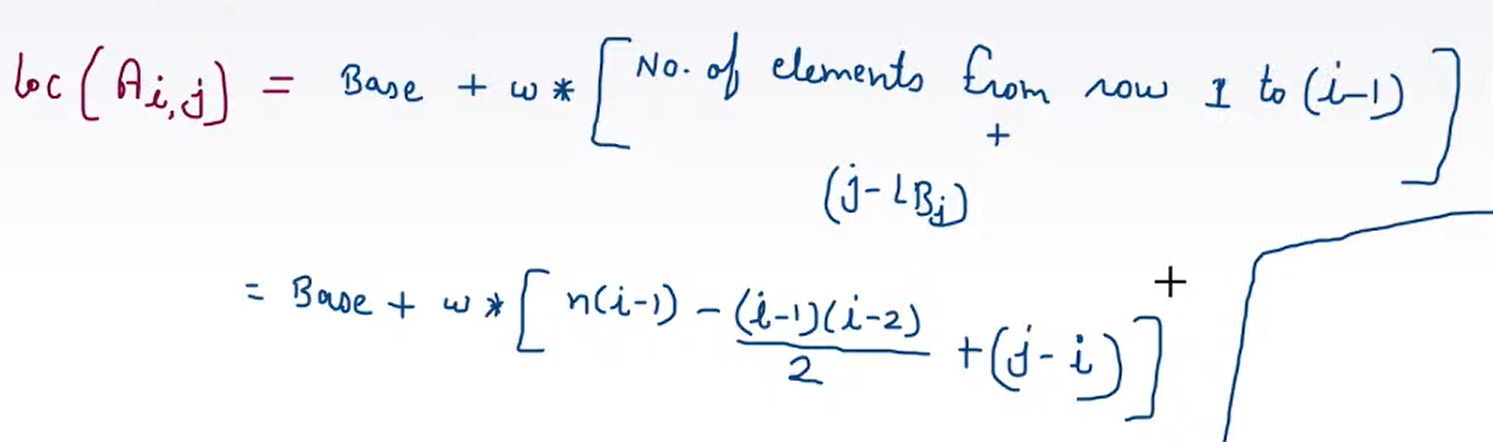 loc(A_{i,j}) = Base + w * [No. of elements from row 1 to (i-1)
+
(j-LB_j)]
= Base + w * [n(i-1) - (i-1)(i-2)/2 + (j-i)]